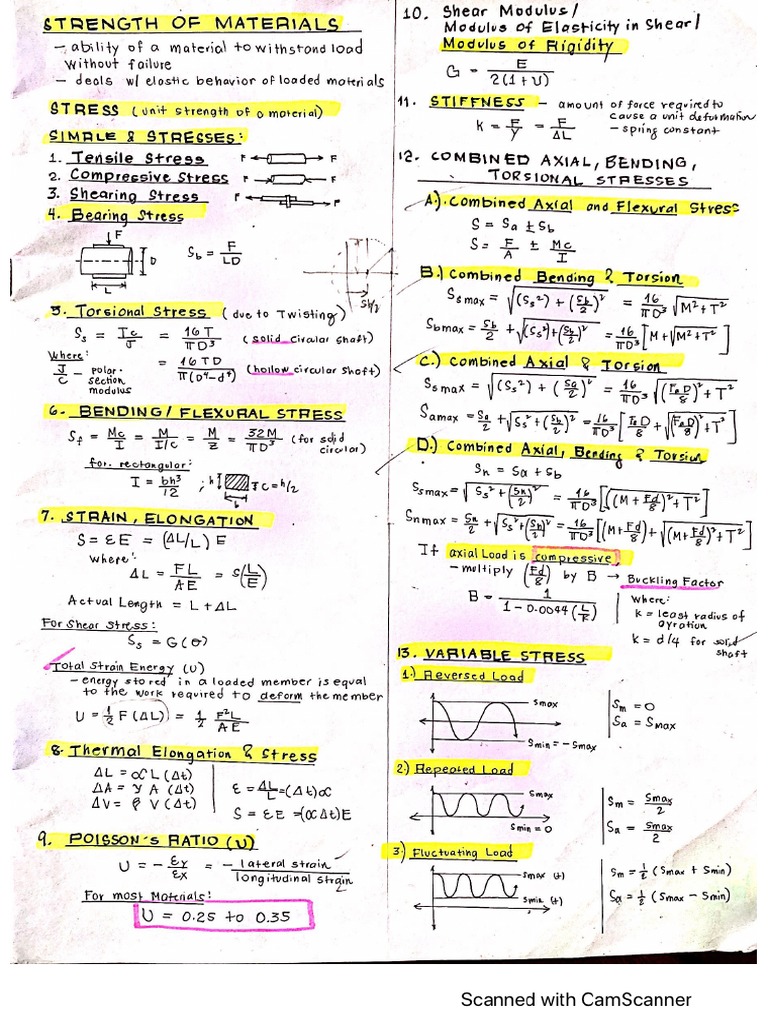 STRENGTH OF MATERIALS
- ability of a material to withstand load
without failure
- deals w/ elastic behavior of loaded materials
STRESS (unit strength of a material)
SIMPLE & STRESSES:
1. Tensile Stress F F
2. Compressive Stress F F
3. Shearing Stress F F
4. Bearing Stress
F
D
L
Sb = F/LD
Sb/2
5. Torsional Stress (due to Twisting)
Ss = Tc/J = 16T/πD³ (solid circular shaft)
Where:
J/C - polar section modulus
= 16TD/π(D⁴-d⁴) (hollow circular shaft)
6. BENDING/ FLEXURAL STRESS
Sf = Mc/I = M/I/c = M/Z = 32M/πD³ (for solid circular)
for rectangular:
I = bh³/12 ; h b C = h/2
7. STRAIN, ELONGATION
S = εE = (ΔL/L) E
where:
ΔL = FL/AE = S(L/E)
Actual Length = L + ΔL
For Shear Stress:
Ss = G(θ)
Total Strain Energy (U)
- energy stored in a loaded member is equal
to the work required to deform the member
U = 1/2 F(ΔL) = 1/2 F²L/AE
8. Thermal Elongation & Stress
ΔL = αL(Δt)
ΔA = γ A (Δt)
ΔV = β V(Δt)
ε = ΔL/L = (Δt)α
S = εE = (αΔt)E
9. POISSON'S RATIO (υ)
υ = - εy/εx = - lateral strain/longitudinal strain
For most Materials:
υ = 0.25 to 0.35
10. Shear Modulus/
Modulus of Elasticity in Shear/
Modulus of Rigidity
G = E/2(1+υ)
11. STIFFNESS - amount of force required to
cause a unit deformation
k = F/y = F/ΔL - spring constant
12. COMBINED AXIAL, BENDING,
TORSIONAL STRESSES
A.) Combined Axial and Flexural Stress
S = Sa ± Sb
S = F/A ± Mc/I
B.) Combined Bending & Torsion
Ss max = √(Ss²) + (Sb/2)² = 16/πD³ √M²+T²
Sb max = Sb/2 + √(Ss²)+(Sb/2)² = 16/πD³ [M+√M²+T²]
C.) Combined Axial & Torsion
Ss max = √(Ss²) + (Sa/2)² = 16/πD³ √(FaD/8)² + T²
Samax = Sa/2 + √Ss² + (Sb/2)² = 16/πD³ [FaD/8 + √(FaD/8)² + T²]
D.) Combined Axial, Bending & Torsion
Sn = Sa + Sb
Ssmax = √Ss² + (Sn/2)² = 16/πD³ [(M + Fd/8)² + T²]
Snmax = Sn/2 + √Ss² + (Sn/2)² = 16/πD³ [(M+Fd/8) + √(M+Fd/8)² + T²]
If axial Load is compressive
- multiply (Fd/8) by B → Buckling Factor
B = 1/1-0.0044(L/k)
where:
k = least radius of
gyration
k = d/4 for solid
shaft
13. VARIABLE STRESS
1.) Reversed Load
Smax
Smin = -Smax
Sm = 0
Sa = Smax
2.) Repeated Load
Smax
Smin = 0
Sm = Smax/2
Sa = Smax/2
3.) Fluctuating Load
Smax (+)
Smin (+)
Sm = 1/2 (Smax + Smin)
Sa = 1/2 (Smax - Smin)
Scanned with CamScanner